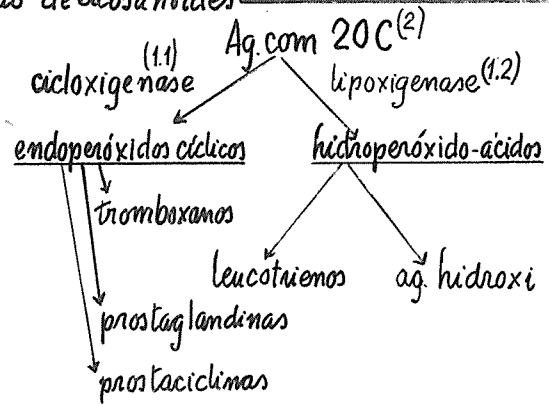 de eicosanoides
Ag. com 20C (2)
(1.1)
cicloxigenase
lipoxigenase (1.2)
endoperóxidos cíclicos
hidroperóxido-ácidos
tromboxanos
leucotrienos
ag. hidroxi
prostaglandinas
prostaciclinas